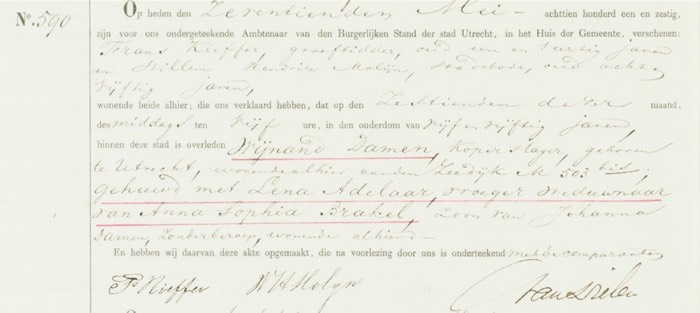 No. 590
Op heden den Zeventienden Mei - achttien honderd een en zestig,
zijn voor ons ondergeteekende Ambtenaar van den Burgerlijken Stand der stad Utrecht, in het Huis der Gemeente, verschenen:
Frans Kieffer, groefbidder, oud een en veertig jaren
en Willem Hendrik Molijn, Stadsbode, oud acht en
vijftig jaren,
wonende beide alhier; die ons verklaard hebben, dat op den Zestienden dezer maand,
des middags ten vijf ure, in den ouderdom van vijf en vijftig jaren,
binnen deze stad is overleden Wijnand Damen, koperslager, geboren
te Utrecht, wonende alhier aan den Leidijk M 503 bis,
gehuwd met Lena Adelaar, vroeger weduwnaar
van Anna Sophia Brakel, Zoon van Johanna
Damen, zonder beroep, wonende alhier. —
En hebben wij daarvan deze akte opgemaakt, die na voorlezing door ons is onderteekend met de comparanten
F Kieffer W H Molyn